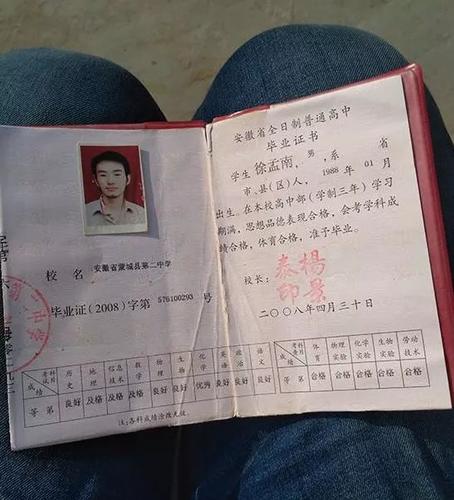 校 名 安徽省蒙城县第二中学
毕业证(2008)字第 576100293 号
考试科目 历史 地理 信息技术 数学 物理 生物 化学 英语 政治 语文
成绩 等第 良好 及格 及格 及格 良好 良好 优秀 良好 良好 良好
注:各科成绩涂改无效。
安徽省全日制普通高中
毕业证书
学生 徐孟南,男,系 省
市、县(区)人,1988 年 01 月
出生。在本校高中部(学制三年)学习
期满,思想品德表现合格,会考学科成
绩合格,体育合格,准予毕业。
校长:
杨景
泰印
二〇〇八年四月三十日
考查科目 体育 物理实验 化学实验 生物实验 劳动技术
成绩 等第 合格 合格 合格 合格 合格